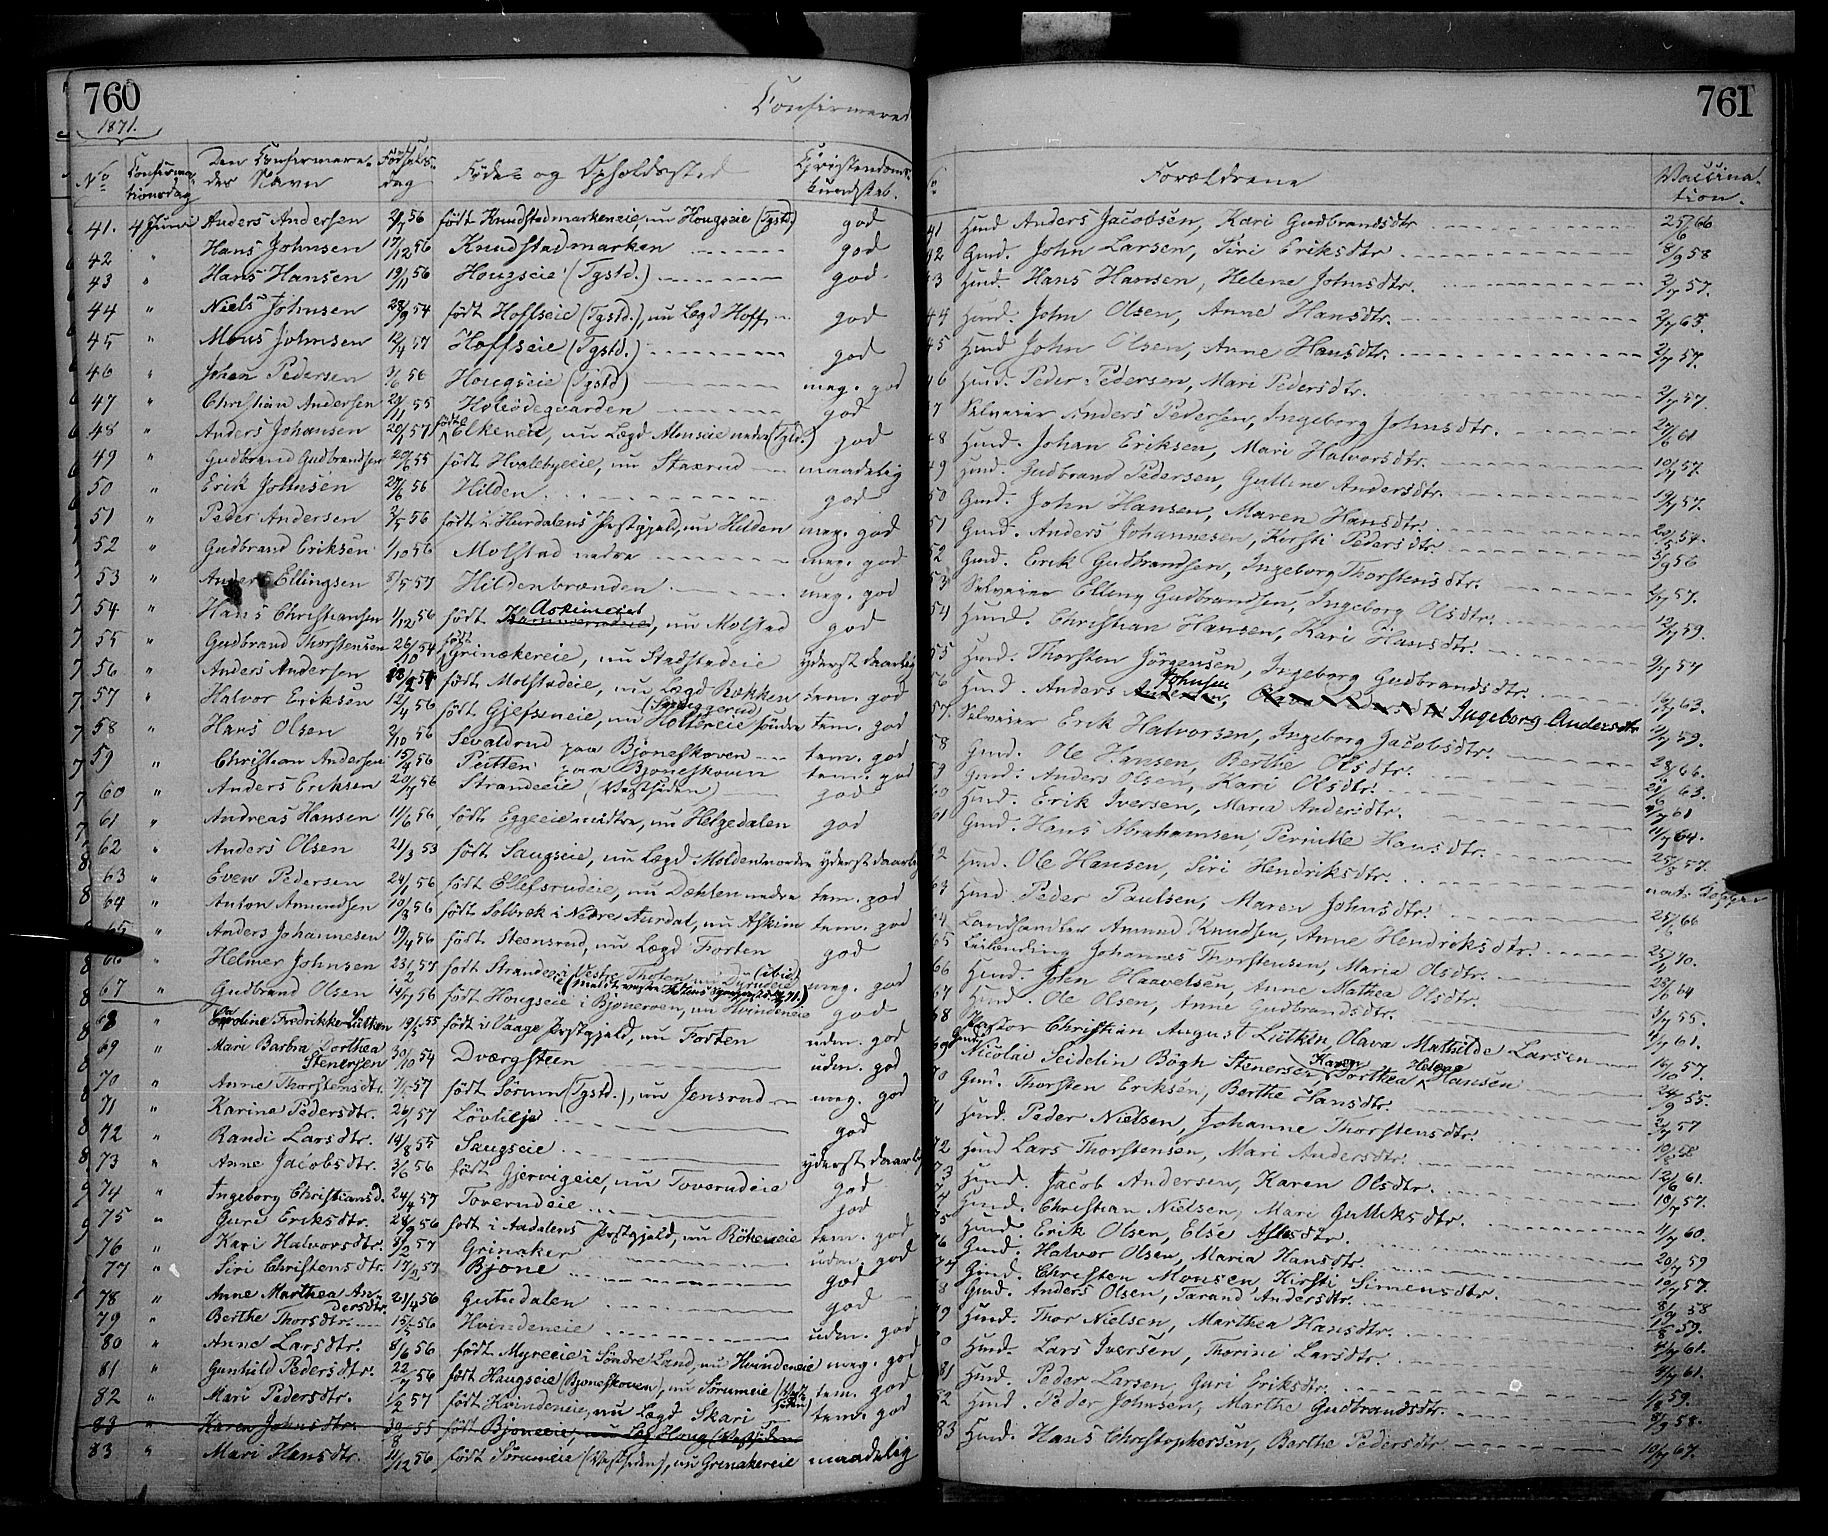 760
1871.
Confirmered
No Confirmationsdag Den Confirmeredes Navn Fødselsdag Føde- og Opholdssted Christendomskundskab.
41. 4 Juni Anders Andersen 56 født Knudstadmarkeneie, nu Hougseie (Tgstd) god
42 " Hans Johnsen 17/12 56 Knudstadmarken god
43 " Hans Hansen 19/11 56 Hougseie (Tgstd.) god
44 " Niels Johnsen 28/9 54 født Hoffseie (Tgstd.), nu Lægd Hoff god
45 " Mons Johnsen 12/4 57 Hoffseie (Tgstd.) god
46 " Johan Pedersen 9/6 56 Hougseie (Tgstd) meg. god
47 " Christian Andersen 55 Holeødegaarden god
48 " Anders Johansen 20/1 57 født nu Lægd god
49 " Gudbrand Gudbrandsen 29/6 55 født Hvalebyeie, nu Staxrud maadelig
50 " Erik Johnsen 27/6 56 Hilden god
51 " Peder Andersen 2/5 56 født i Hurdalens Præstgjæld, nu Hilden meg. god
52 " Gudbrand Eriksen 1/10 56 Molstad nedre meg. god
53 " Anders Ellingsen 5/5 57 Hildenbrænden meg. god
54 " Hans Christiansen 1/12 56 født Askimeiet, nu Molstad god
55 " Gudbrand Thorstensen 26/10 54 født Grinakereie, nu Stadstadeie yderst daarlig
56 " Anders Andersen født Molstadeie, nu Lægd Røkken tem. god
57 " Halvor Eriksen 12/4 56 født Gjefseneie, nu Holtereie søndre (Snuggerud) tem. god
58 " Hans Olsen 2/10 56 Sevaldrud paa Bjoneskoven tem. god
59 " Christian Andersen 15/4 56 Putten paa Bjoneskoven tem. god
60 " Anders Eriksen 20/7 56 Strandeeie (Vestsiden) god
61 " Andreas Hansen 11/6 56 født Eggeeie midtre, nu Helgedalen god
62 " Anders Olsen 21/3 53 født Saugseie, nu Lægd Molden nordre yderst daarlig
63 " Even Pedersen 24/1 56 født Ellefsrudeie, nu Dæhlen nedre tem. god
64 " Anton Amundsen 10/8 56 født Solbræk i Nordre Aurdal, nu Askim tem. god
65 " Anders Johannesen 19/4 56 født Steensrud, nu Lægd Forten god
66 " Helmer Johnsen 23/2 57 født Strandeeie Vestre Thoten, meg. god
67 " Gudbrand Olsen 14/7 56 født Hougseie i Bjoneroen, nu Hvindeneie god
68 " Caroline Fredrikke Lütken 19/5 55 født i Vaage Præstgjæld, nu Forten udm. god
69 " Mari Barbra Dorthea Stenersen 30/10 54 Dværgsteen udm. god
70 " Anne Thorstensdtr. 57 født Sørum (Tgstd.), nu Jensrud meg. god
71 " Karine Pedersdtr. 26/1 57 Løvlilje god
72 " Randi Larsdtr. 14/8 55 Saugseie
73 " Anne Jacobsdtr. 3/6 56 født Gjervigeie, nu Toverudeie yderst daarlig
74 " Ingeborg Christiansd. 24/4 57 Toverudeie god
75 " Guri Eriksdtr. 28/9 56 født i Aadalens Præstgjæld, nu Røkeneie tem. god
76 " Kari Halvorsdtr. 8/2 57 Grinaker udm. god
77 " Siri Christensdtr. 17/2 57 Bjone god
78 " Anne Marthea Andersdtr. 21/4 56 Gutudalen god
79 " Berthe Thorsdtr. 15/5 56 Hvindeneie udm. god
80 " Anne Larsdtr. 8/6 56 født Myreeie i Søndre Land, nu Hvindeneie meg. god
81 " Gunhild Pedersdtr. 22/7 56 født Haugseie (Bjoneskoven), nu Sørumeie (Vestsiden) tem. god
82 " Mari Pedersdtr. 1/2 57 født Hvindeneie, nu Lægd Skari tem. god
83 " Karen Johnsdtr. 30/8 55 født Bjoneeie, nu Houg (Vestsiden
83 " Mari Hansdtr. 11/12 56 født Sørumeie (Vestsiden), nu Grinakereie maadelig
761
Forældrene Vaccination.
41 Husd Anders Jacobsen, Kari Gudbrandsdtr 25/6 66
42 Gmd. John Larsen, Siri Eriksdtr 8/9 58
43 Husd. Hans Hansen, Helene Johnsdtr. 2/7 57.
44 Husd. John Olsen, Anne Hansdtr. 2/7 65.
45 Husd John Olsen, Anne Hansdtr. 2/7 57.
46 Husd. Peder Pedersen, Mari Pedersdtr.
47 Selveier Anders Pedersen, Ingeborg Johnsdtr. 2/7 57.
48 Husd. Johan Eriksen, Mari Halvorsdtr. 27/6 61
49 Husd. Gudbrand Pedersen, Gulline Andersdtr. 10/7 57.
50 Gmd. John Hansen, Maren Hansdtr. 19/7 57.
51 Gmd. Anders Johannesen, Kersti Pedersdtr 57.
52 Gmd. Erik Gudbrandsen, Ingeborg Thorstensdtr. 3/9 56
53 Selveier Elling Gudbrandsen, Ingeborg Olsdtr. 2/7 57.
54 Husd. Christian Hansen, Kari Hansdtr. 12/7 59.
55 Husd. Thorsten Jörgensen, Ingeborg Gudbrandsdtr. 2/7 57
56 Husd. Anders Johnsen Ingeborg Andersdtr 16/7 63.
57. Selveier Erik Halvorsen, Ingeborg Jacobsdtr. 59.
58 Gmd. Ole Hansen, Berthe Olsdtr. 66.
59 Gmd. Anders Olsen, Kari Olsdtr. 63.
60 Husd. Erik Iversen, Maria Andersdtr. 61
61 Gmd. Hans Abrahamsen, Pernille Hansdtr. 11/7 64.
62 Husd. Ole Hansen, Siri Hendriksdtr. 25/8 57.
63 Husd. Peder Paulsen, Maren Johnsdtr.
64 Landhandler Amund Knudsen, Anne Hendriksdtr. 25/6 66
65 Leilænding Johannes Thorstensen, Maria Olsdtr. 70.
66 Husd. John Haavelsen, Anne Mathea Olsdtr. 25/6 64
67 Husd. Ole Olsen, Anne Gudbrandsdtr. 3/7 55.
68 Pastor Christian August Lütken, Olava Mathilde Larsen 4/7 61.
69 Nicolai Seidelin Bögh Stenersen, Karen Dorthea Helene Hansen 16/10 57.
70 Gmd. Thorsten Eriksen, Berthe Hansdtr. 24/9 55.
71 Husd. Peder Nielsen, Johanne Thorstensdtr. 2/7 57
72 Husd Lars Thorstensen, Mari Andersdtr. 58
73 Husd. Jacob Andersen, Karen Olsdtr. 12/6 61.
74 Husd. Christian Nielsen, Mari Gulliksdtr. 10/7 57.
75 Husd. Erik Olsen, Else Aslesdtr. 4/7 60.
76 Gmd. Halvor Olsen, Maria Hansdtr. 20/7 59
77 Gmd. Christen Monsen, Kirsti Simensdtr. 10/7 57.
78 Gmd. Anders Olsen, Tarand Andersdtr. 8/9 58
79 Husd. Thor Nielsen, Marthea Hansdtr. 59.
80 Husd. Lars Iversen, Thorine Larsdtr. 61.
81 Husd. Peder Larsen, Guri Eriksdtr. 61.
82 Husd. Peder Johnsen, Marthe Gudbrandsdtr. 59.
8/9 58.
83 Husd. Hans Christophersen, Berthe Pedersdtr. 10/7 67.